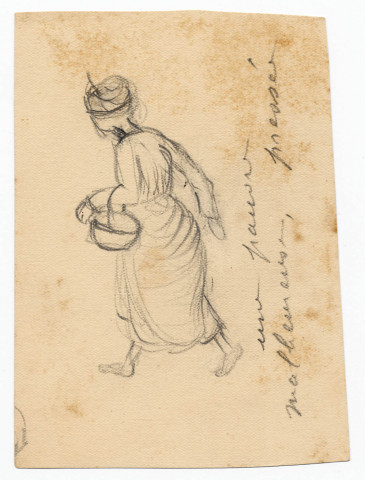 une pauvre
malheureuse, pressée